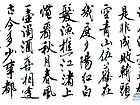 是非成敗轉頭
空青山依舊在
幾度夕陽紅白
髮漁樵江渚上
慣看秋月春風
一壺濁酒喜相逢
古今多少事都